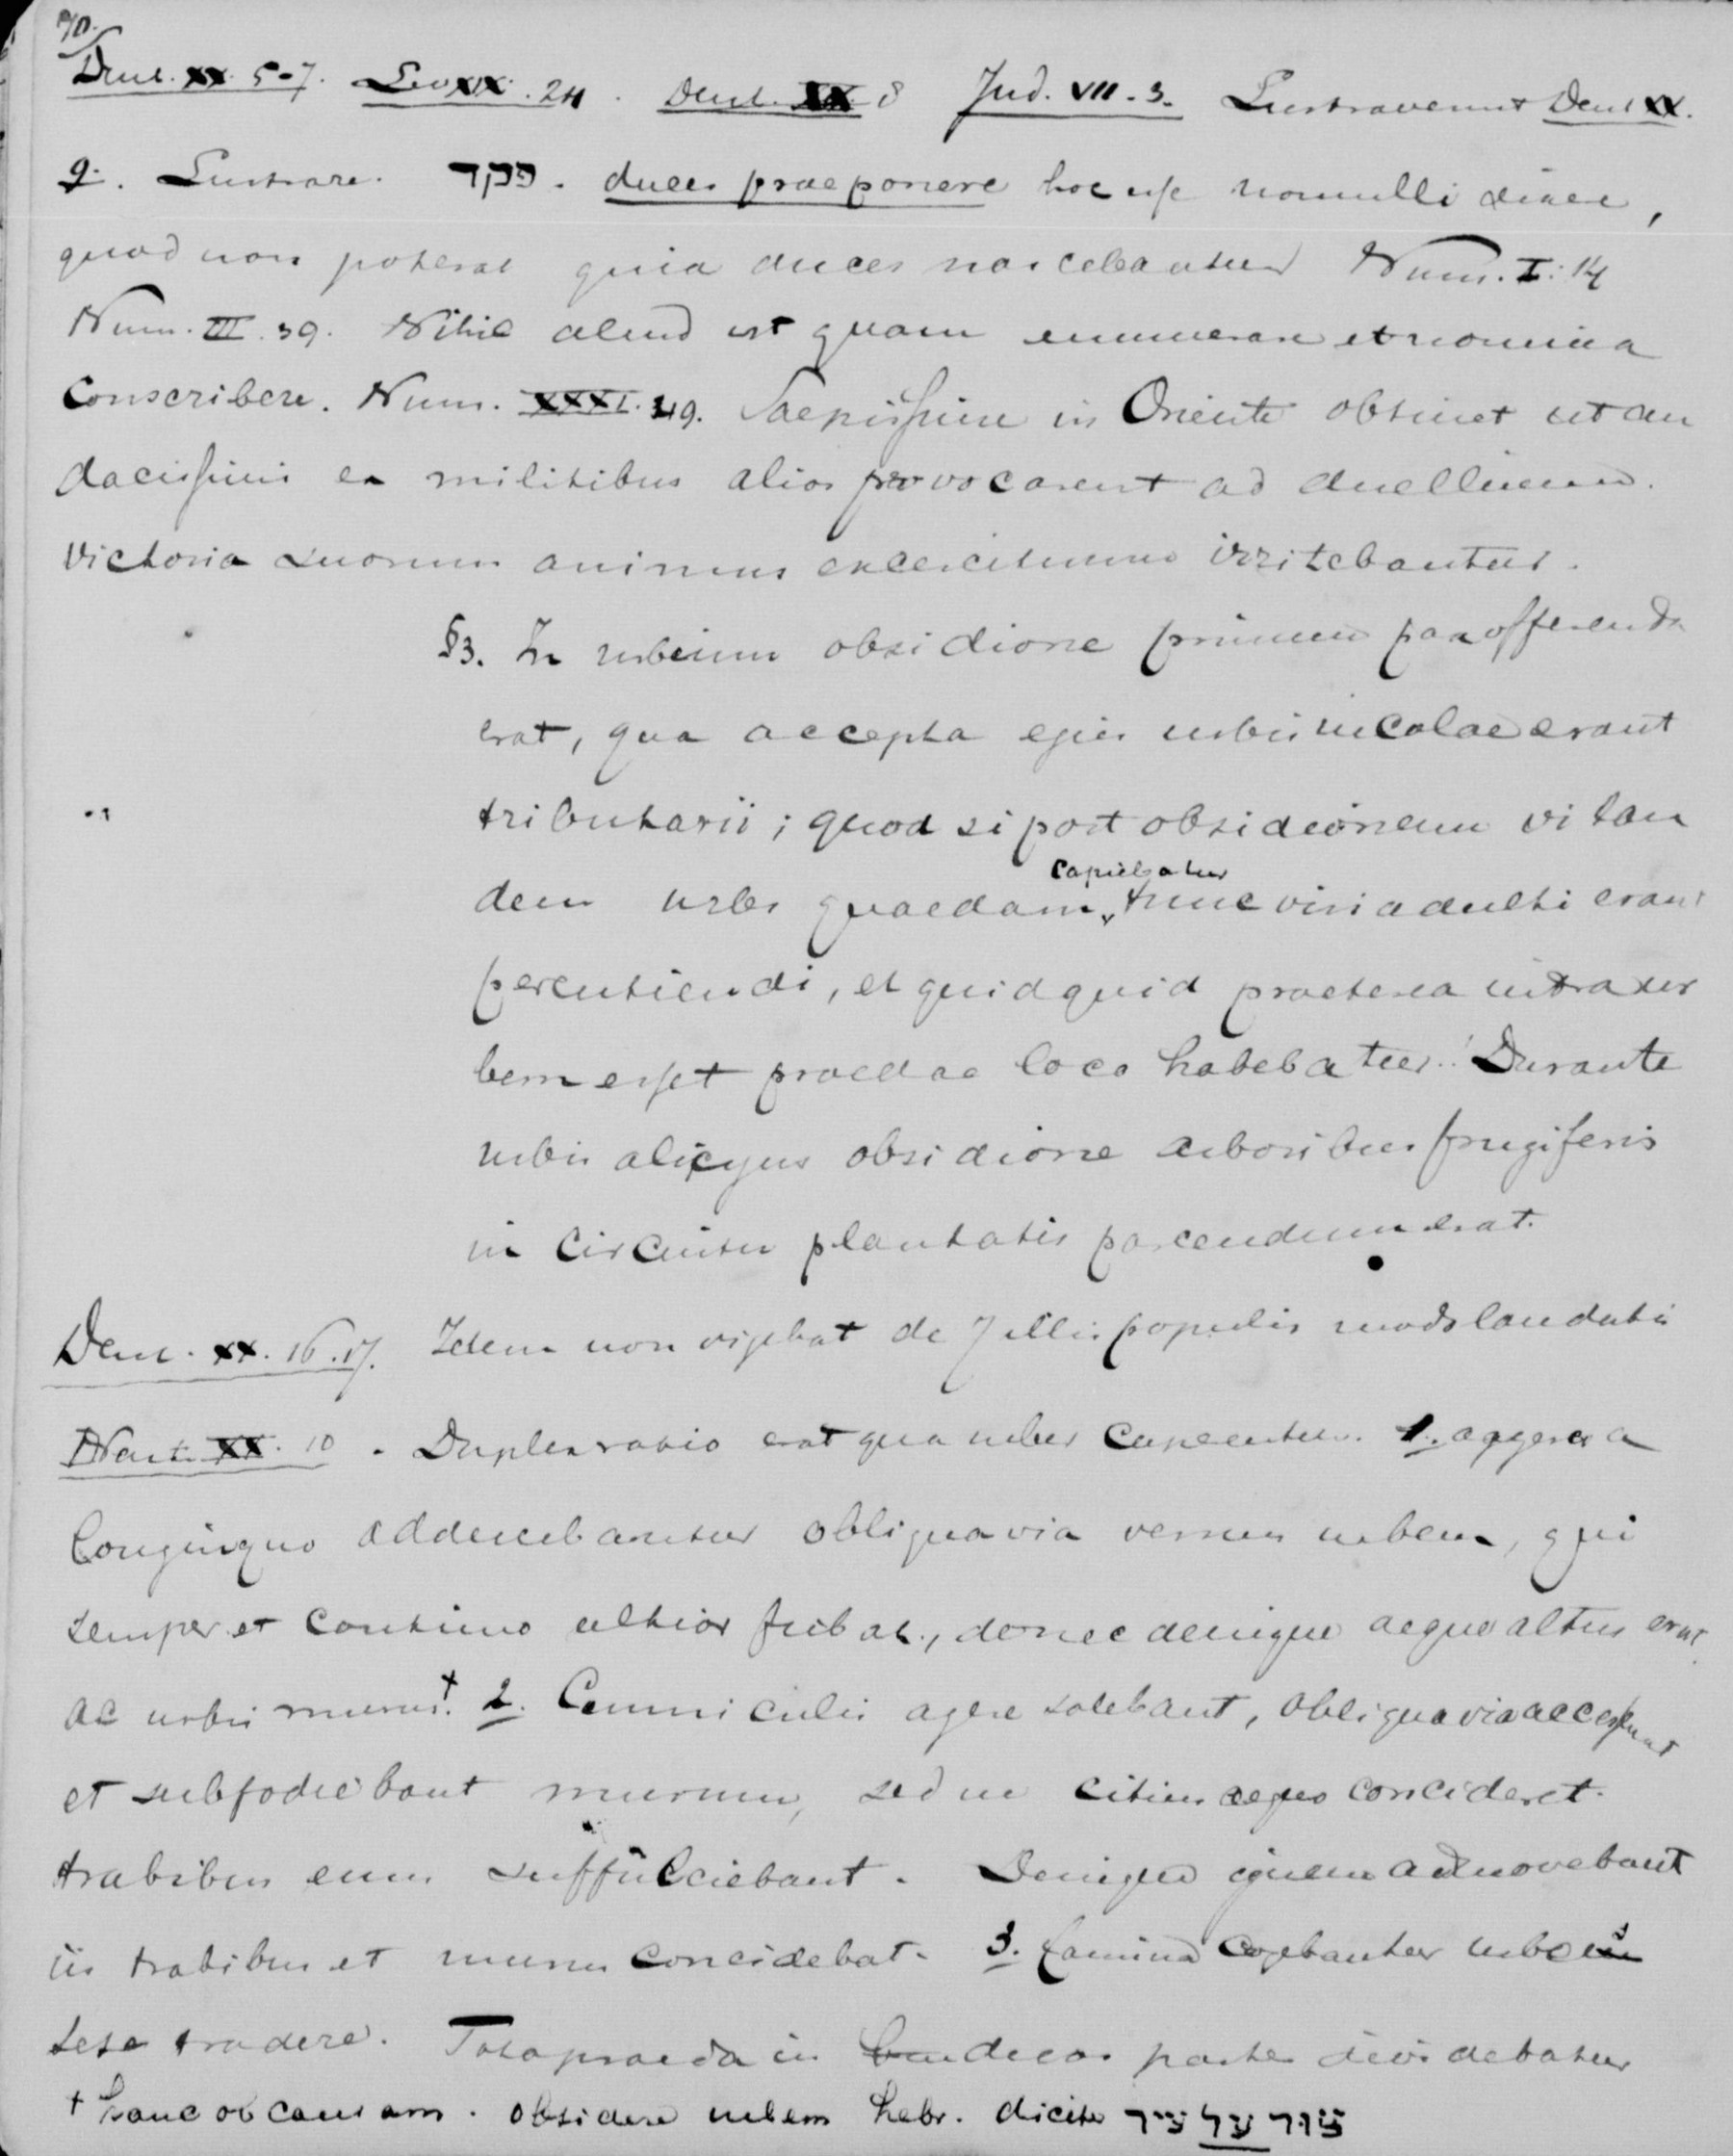 90.
Deut. XX. 5-7. Lev XIX. 24. Deut. XX 8 Jud. VII. 3. Lustraverunt Deut XX.
9. Lustrare. פקד. duces praeponere hoc esse nonnulli dicere,
quod non poterat quia duces nascebantur Num. I. 14
Num. III. 39. Nihil aliud est quam enumerare et nomina
conscribere. Num. XXXI. 49. Saepissime in Oriente obtinet ut au
dacissimi ex militibus alios provocarent ad duellum.
Victoria suorum animus exercituum irritebantur.
§3. In urbium obsidione primum pax offerenda
erat, qua accepta ejus urbis incolae erant
tributarii; quod si post obsidionem vi tan
dem urbs quaedam capiebatur tunc viri adulti erant
percutiendi, et quidquid praeterea intra ur
bem esset praedae loco habebatur. Durante
urbis alicujus obsidione arboribus frugiferis
in circuitu plantatis parcendum erat.
Deut. XX. 16.17. Idem non vigebat de 7 illis populis modo laudatis
XX. 10. Duplex ratio erat qua urbes caperentur. 1. aggeres a
longinquo adducebantur obliqua via versus urbem, qui
semper et continuo altior fiebat, donec denique aeque altus erat
ac urbis murus.† 2. Cuniculis agere solebant, obliqua via accesserunt
et subfodiebant murum, sed ne citius aequo concideret
trabibus eum suffulciebant. Denique ignem admovebant
iis trabibus et murus concidebat. 3. famina cogebantur urbes
sese tradere. Tota praeda in duas partes dividebatur
† hanc ob causam. obsidere urbem hebr. dicitur צור על עיר